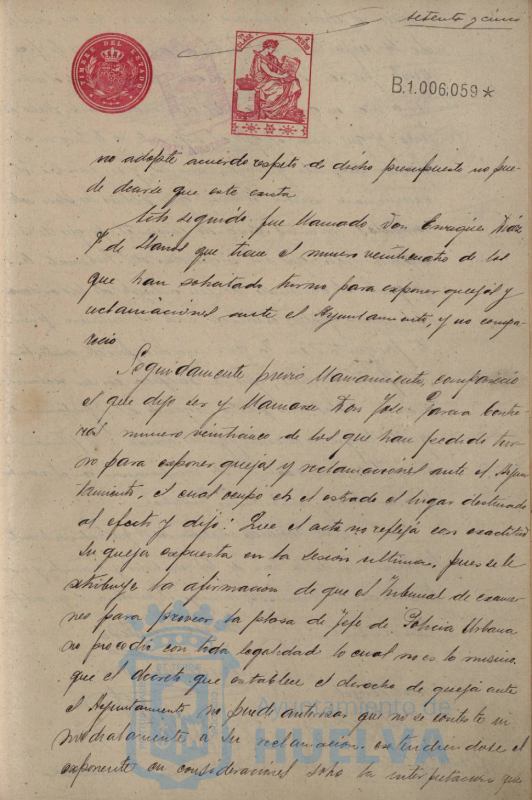 setenta y cinco
TIMBRE DEL ESTADO
CLASE
B.1.006.059*
no adopte acuerdo respeto de dicho presupuesto no pue-
de decirse que este exista
Acto seguido fue llamado Don Enrique Diaz
F. de Llanos que tiene el numero veinticuatro de los
que han solicitado turno para exponer quejas y
reclamaciones ante el Ayuntamiento, y no compa-
recio
Seguidamente previo llamamiento, comparecio
el que dijo ser y llamarse Don Jose Parra Contre
ras numero veinticinco de los que han pedido tur-
no para exponer quejas y reclamaciones ante el Ayun-
tamiento, el cual ocupo en el estrado el lugar destinado
al efecto y dijo: Que el acta no refleja con exactitud
su queja expuesta en la sesion ultima, pues se le
atribuye la afirmacion de que el Tribunal de exame-
nes para proveer la plaza de Jefe de Policia Urbana
no procedio con toda legalidad lo cual no es lo mismo.
que el decreto que establece el derecho de queja ante
el Ayuntamiento no puede autorizar que no se conteste in
mediatamente á su reclamacion extendiendose el
exponente en consideraciones sobre la interpretacion que
Ayuntamiento de
HUELVA